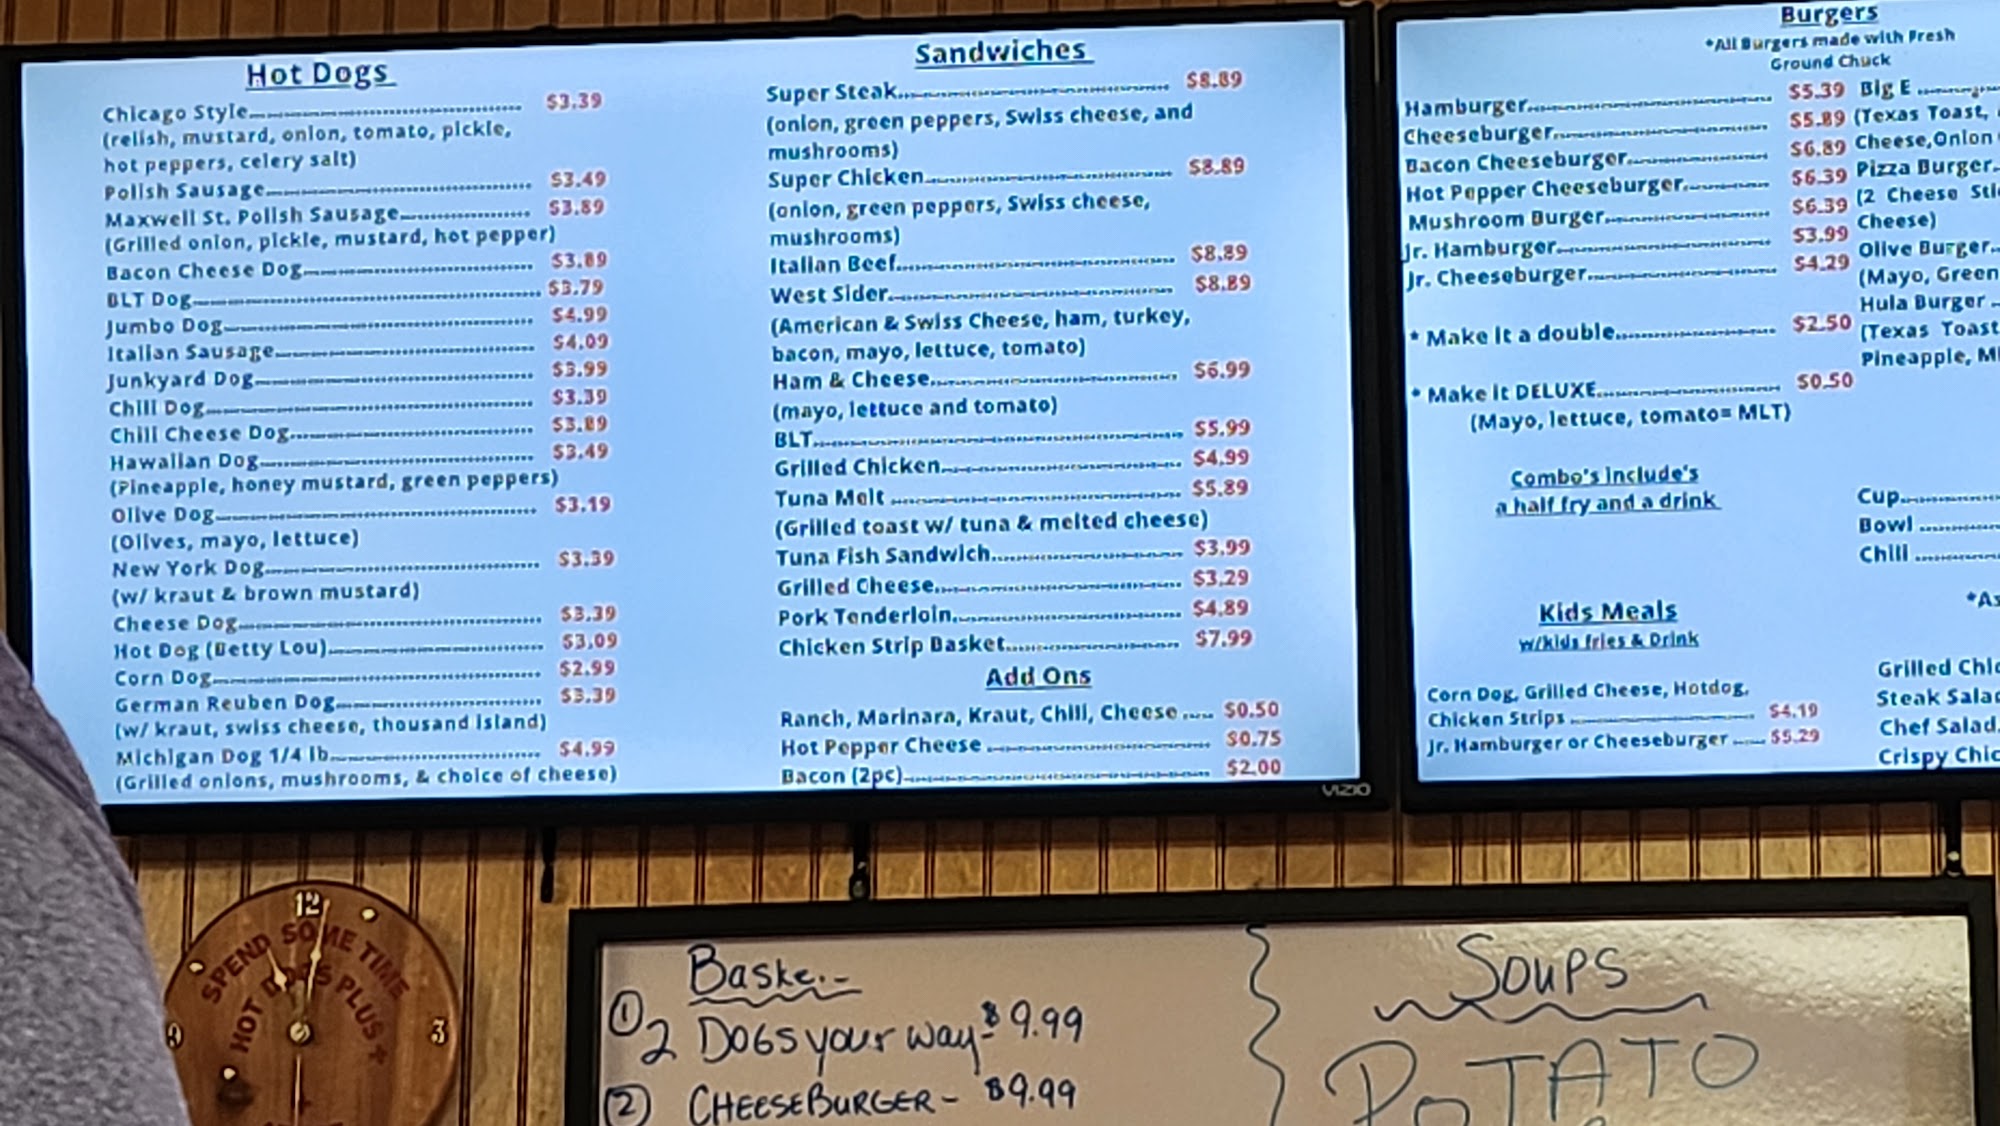 Hot Dogs
Chicago Style $3.39
(relish, mustard, onion, tomato, pickle,
hot peppers, celery salt)
Polish Sausage $3.49
Maxwell St. Polish Sausage $3.89
(Grilled onion, pickle, mustard, hot pepper)
Bacon Cheese Dog $3.89
BLT Dog $3.79
Jumbo Dog $4.99
Italian Sausage $4.09
Junkyard Dog $3.99
Chili Dog $3.39
Chili Cheese Dog $3.89
Hawaiian Dog $3.49
(Pineapple, honey mustard, green peppers)
Olive Dog $3.19
(Olives, mayo, lettuce)
New York Dog $3.39
(w/ kraut & brown mustard)
Cheese Dog $3.39
Hot Dog (Betty Lou) $3.09
Corn Dog $2.99
German Reuben Dog $3.39
(w/ kraut, swiss cheese, thousand island)
Michigan Dog 1/4 lb $4.99
(Grilled onions, mushrooms, & choice of cheese)
Sandwiches
Super Steak $8.89
(onion, green peppers, Swiss cheese, and
mushrooms)
Super Chicken $8.89
(onion, green peppers, Swiss cheese,
mushrooms)
Italian Beef $8.89
West Sider $8.89
(American & Swiss Cheese, ham, turkey,
bacon, mayo, lettuce, tomato)
Ham & Cheese $6.99
(mayo, lettuce and tomato)
BLT $5.99
Grilled Chicken $4.99
Tuna Melt $5.89
(Grilled toast w/ tuna & melted cheese)
Tuna Fish Sandwich $3.99
Grilled Cheese $3.29
Pork Tenderloin $4.89
Chicken Strip Basket $7.99
Add Ons
Ranch, Marinara, Kraut, Chili, Cheese $0.50
Hot Pepper Cheese $0.75
Bacon (2pc) $2.00
VIZIO
Burgers
*All Burgers made with Fresh
Ground Chuck
Hamburger $5.39
Cheeseburger $5.89
Bacon Cheeseburger $6.89
Hot Pepper Cheeseburger $6.39
Mushroom Burger $6.39
Jr. Hamburger $3.99
Jr. Cheeseburger $4.29
* Make it a double $2.50
* Make it DELUXE $0.50
(Mayo, lettuce, tomato= MLT)
Combo's include's
a half fry and a drink
Kids Meals
w/kids fries & Drink
Corn Dog, Grilled Cheese, Hotdog,
Chicken Strips $4.19
Jr. Hamburger or Cheeseburger $5.29
Big E
(Texas Toast,
Cheese,Onion
Pizza Burger
(2 Cheese
Cheese)
Olive Burger
(Mayo, Green
Hula Burger
(Texas Toast
Pineapple,
Cup
Bowl
Chili
Grilled
Steak
Chef Salad
Crispy
12
3
9
SPEND SOME TIME
HOT DOGS PLUS+
Baske
① 2 DOGS your way - $9.99
② CHEESEBURGER - $9.99
Soups
POTATO